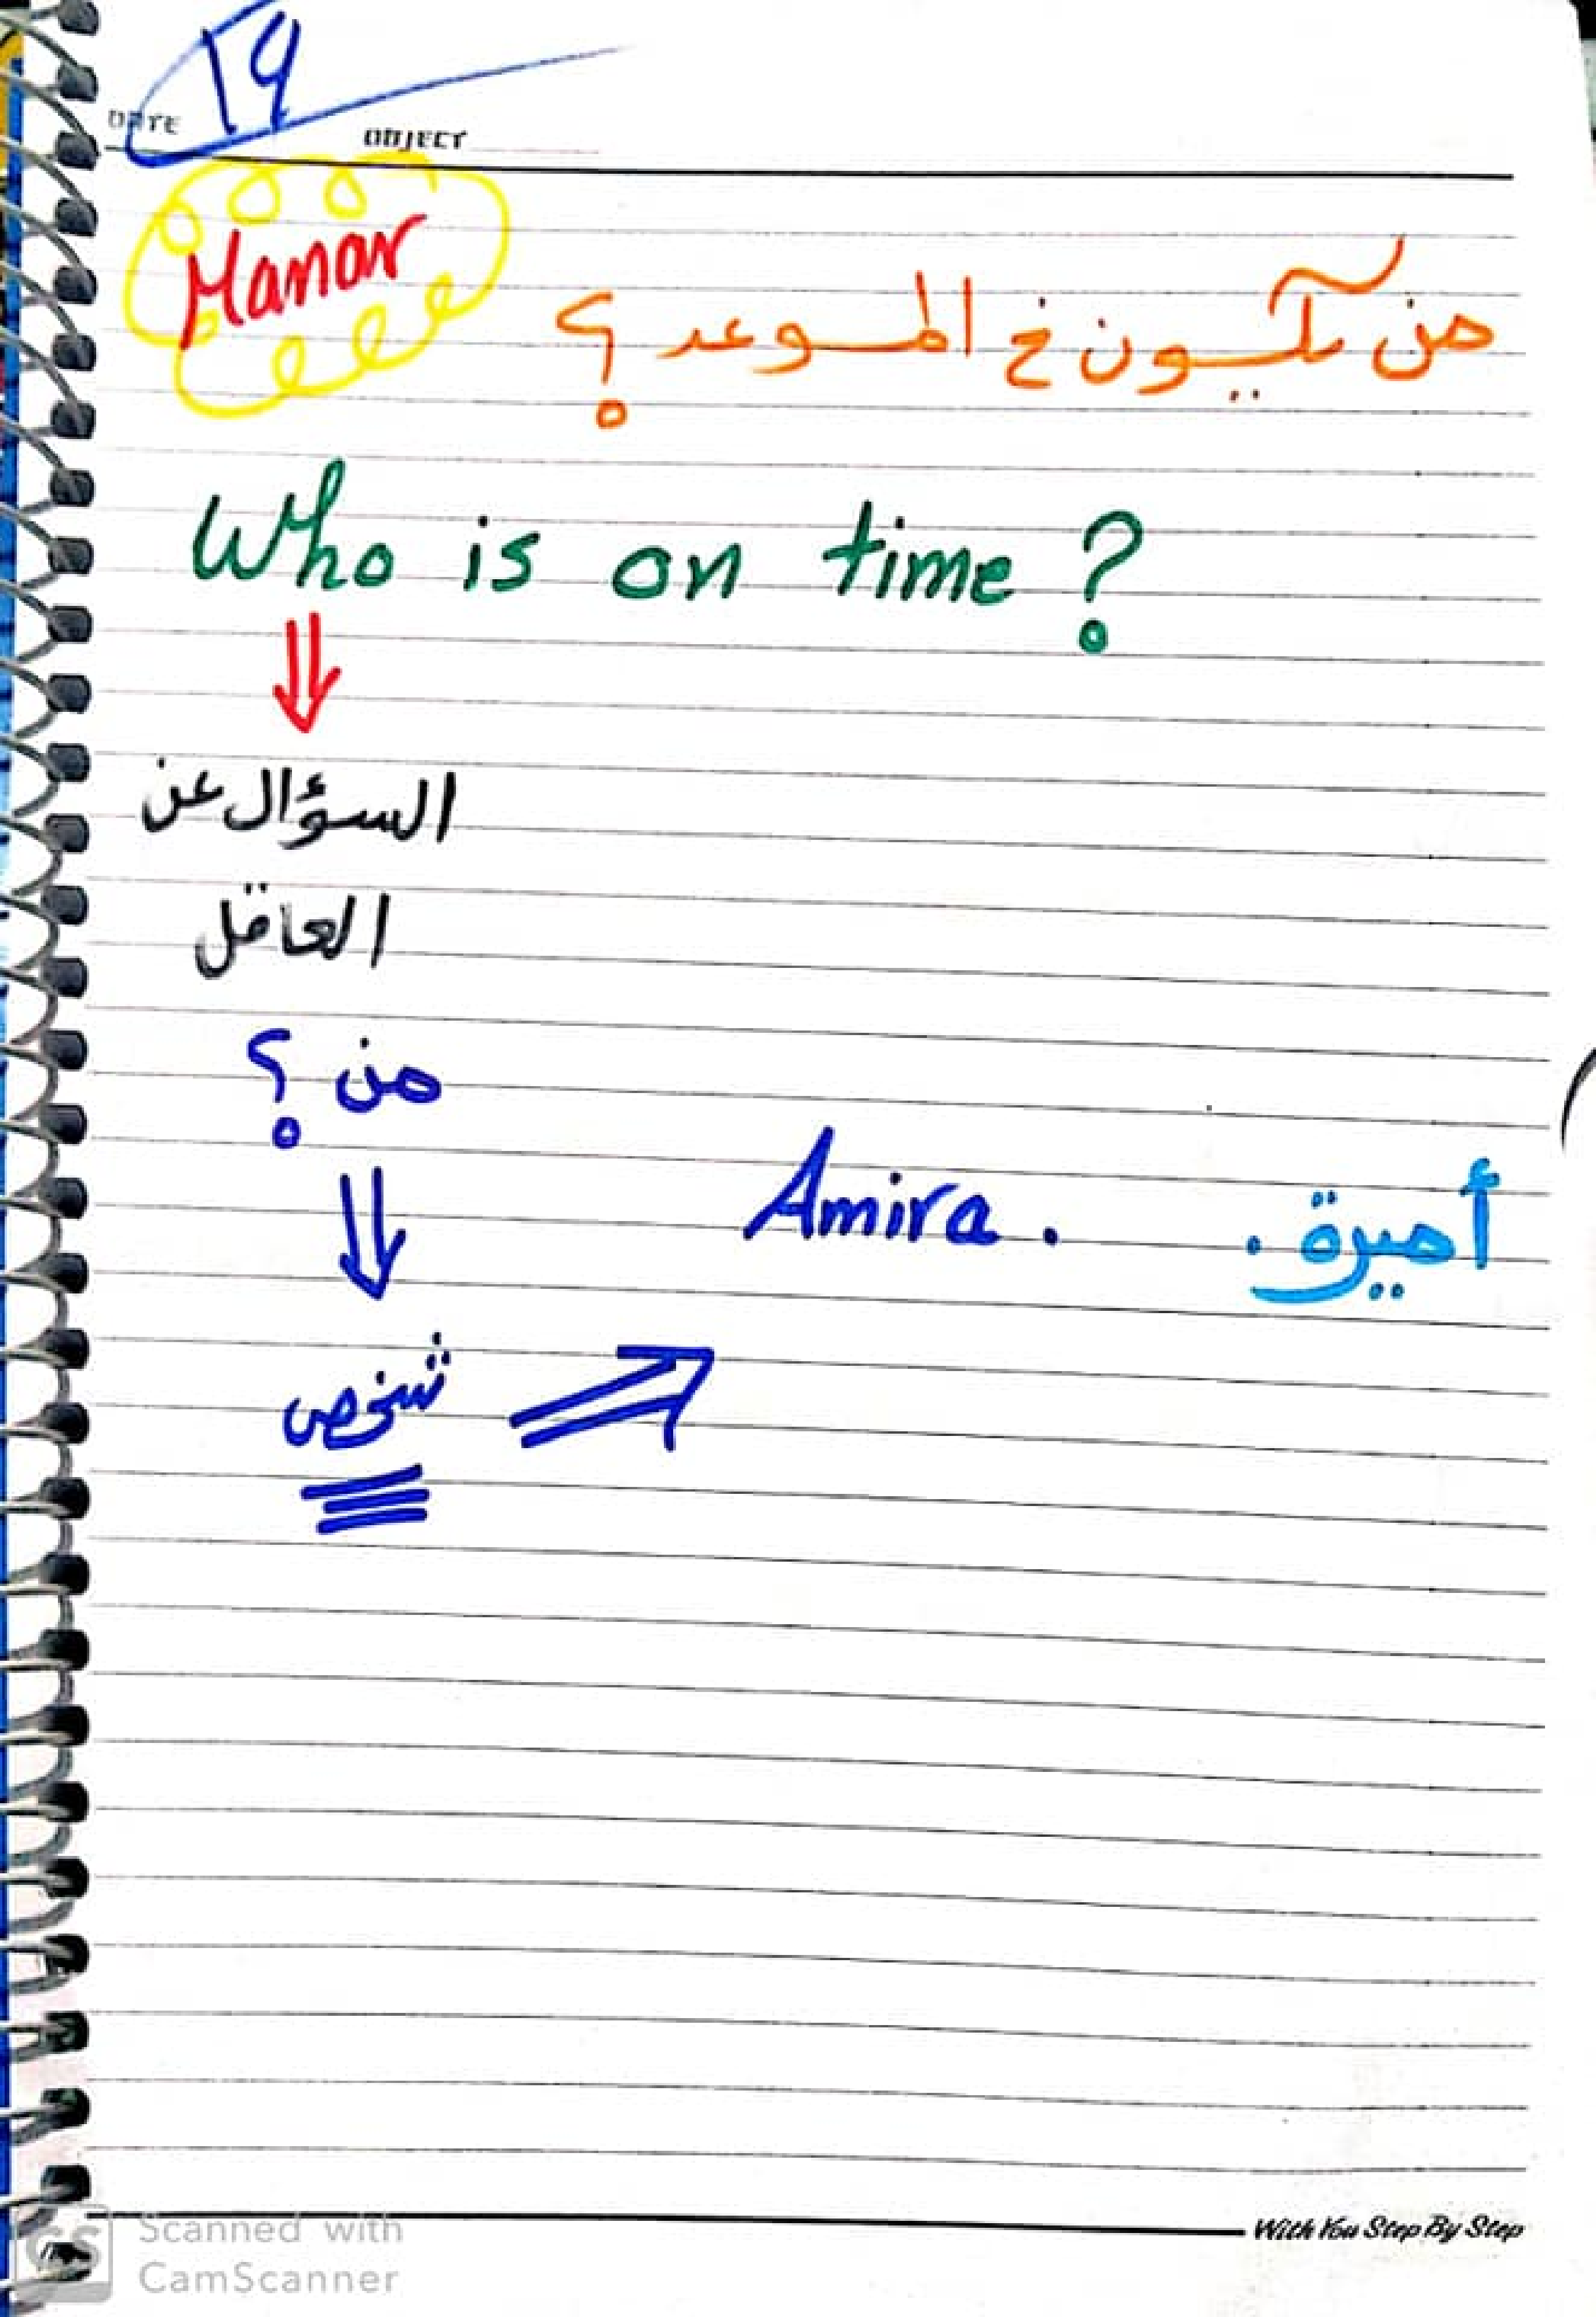 19
DATE
OBJECT
Manar
من يكون في الموعد؟
Who is on time?
السؤال عن
العاقل
من؟
Amira. أميرة.
شخص
With You Step By Step
CS
Scanned with
CamScanner